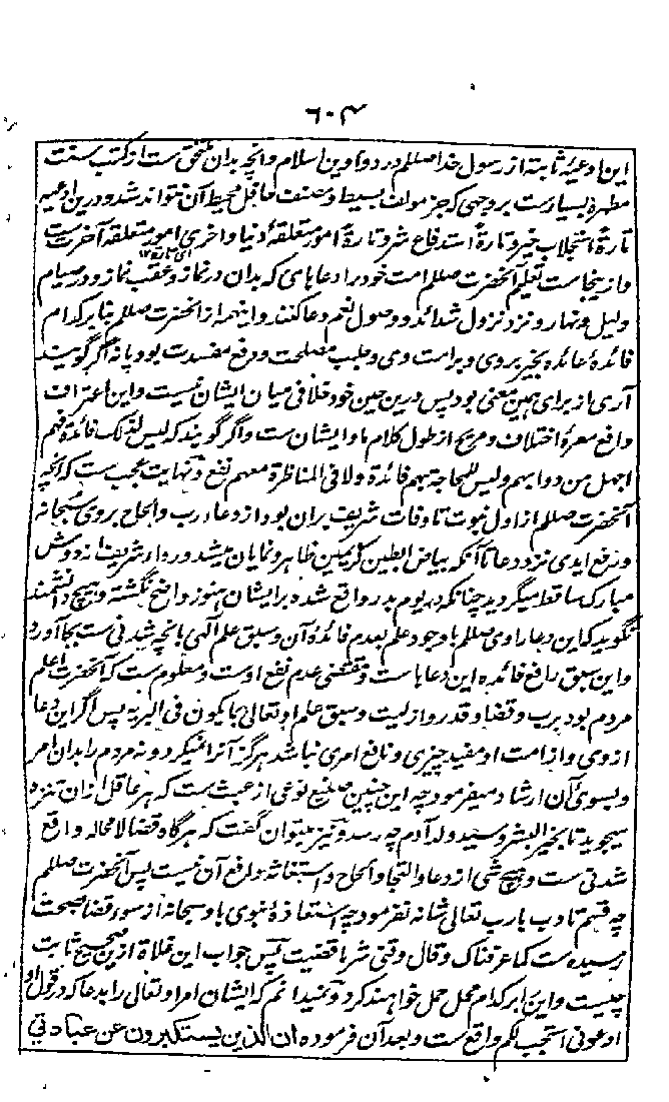 ۶۰۴
این ادعیهٔ ثابته از رسول خدا صللم در دواوین اسلام و آنچه بدان ملحق ست از کتب سنت
مطهره بسیارست بروجهی که جز مولف بسیط و مصنف حافل محیط آن نتواند شد و درین ادعیه
تارة استجلاب خیر و تارة استدفاع شر و تارة امور متعلقه دنیا و اخری امور متعلقه آخرت ست
و ازینجاست تعلیم آنحضرت صللم امت خود را دعاهای که بدان در نماز و عقب نماز و در صیام
و لیل و نهار و نزد نزول شدائد و وصول نعم دعا کنند و اینهمه از آنحضرت صللم بنا بر کدام
فائدهٔ عائده بخیر بر وی و بر امت وی و جلب مصلحت و دفع مفسدت بود یا نه اگر گویند
آری از برای همین معنی بود پس درین حین خود خلافی میان ایشان نیست و این اعتراف
دافع معرهٔ اختلاف و مریح از طول کلام ما و ایشان ست و اگر گویند که لیس لذلک فائدة فهم
اجهل من دوابهم ولیس للمحاجة بهم فائدة ولا فی المناظرة معهم نفع و نهایت عجب ست که آنچه
آنحضرت صللم از اول نبوت تا وفات شریف بران بود از دعاء رب و الحاح بروی سبحانه
و رفع ایدی نزد دعا تا آنکه بیاض ابطین کریمین ظاهر و نمایان میشد و رداء شریف از دوش
مبارک ساقط میگردید چنانکه در یوم بدر واقع شده بر ایشان هنوز واضح نگشته و هیچ دانشمند
نگوید که این دعا را وی صللم باوجود علم بعدم فائدهٔ آن و سبق علم الهی بآنچه شدنی ست بجا آورد
و این سبق رافع فائده این دعاها ست و مقتضی عدم نفع اوست و معلوم ست که آنحضرت اعلم
مردم بود برب و قضا و قدر و ازلیت و سبق علم او تعالی بما یکون فی البریه پس اگر این دعا
از وی و از امت او مفید چیزی و نافع امری نباشد هرگز آنرا نمیکرد و نه مردم را بدان امر
و بسوی آن ارشاد میفرمود چه این چنین صنیع نوعی از عبث ست که هر عاقل ازان تنزه
میجوید تا بخیر البشر و سید ولد آدم چه رسد و نیز میتوان گفت که هرگاه قضا لا محاله واقع
شدنی ست و هیچ شی از دعا و التجا و الحاح و استغاثه دافع آن نیست پس آنحضرت صللم
چه قسم تادب بارب تعالی شانه نفرمود چه استعاذهٔ نبوی باو سبحانه از سوء قضا بصحت
رسیده ست کما عرفناک و قال وقنی شر ما قضیت پس جواب این غلاة ازین صحیح ثابت
چیست و این را بر کدام محمل حمل خواهند کرد و نمیدانم که ایشان امر او تعالی را بدعا که در قول او
ادعونی استجب لکم واقع ست و بعد آن فرموده ان الذین یستکبرون عن عبادتی